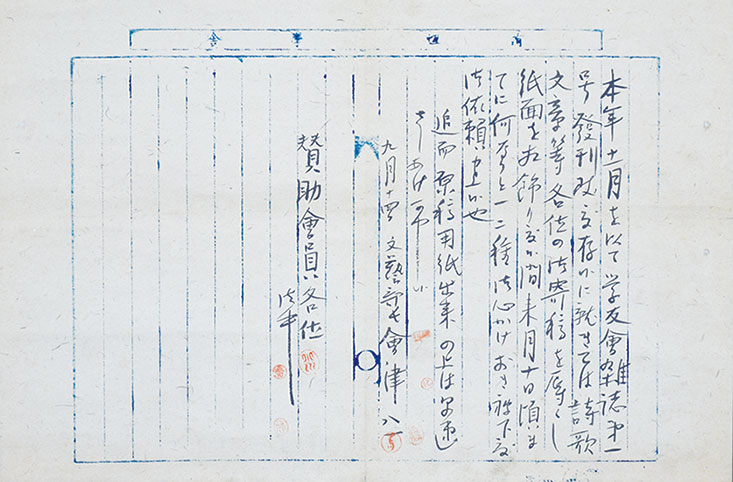 本年十一月を以て学友會雑誌第一
号發刊致度存候に就きては詩歌
文章等各位の御寄稿を辱くし
紙面を相飾り度候間来月十日頃ま
でに何なりと一二種御心がけおき被下度
御依頼申上候也
追而原稿用紙出来の上は早速
さしあげ可申候
九月十四 文藝部長 會津八一
賛助會員各位
御中